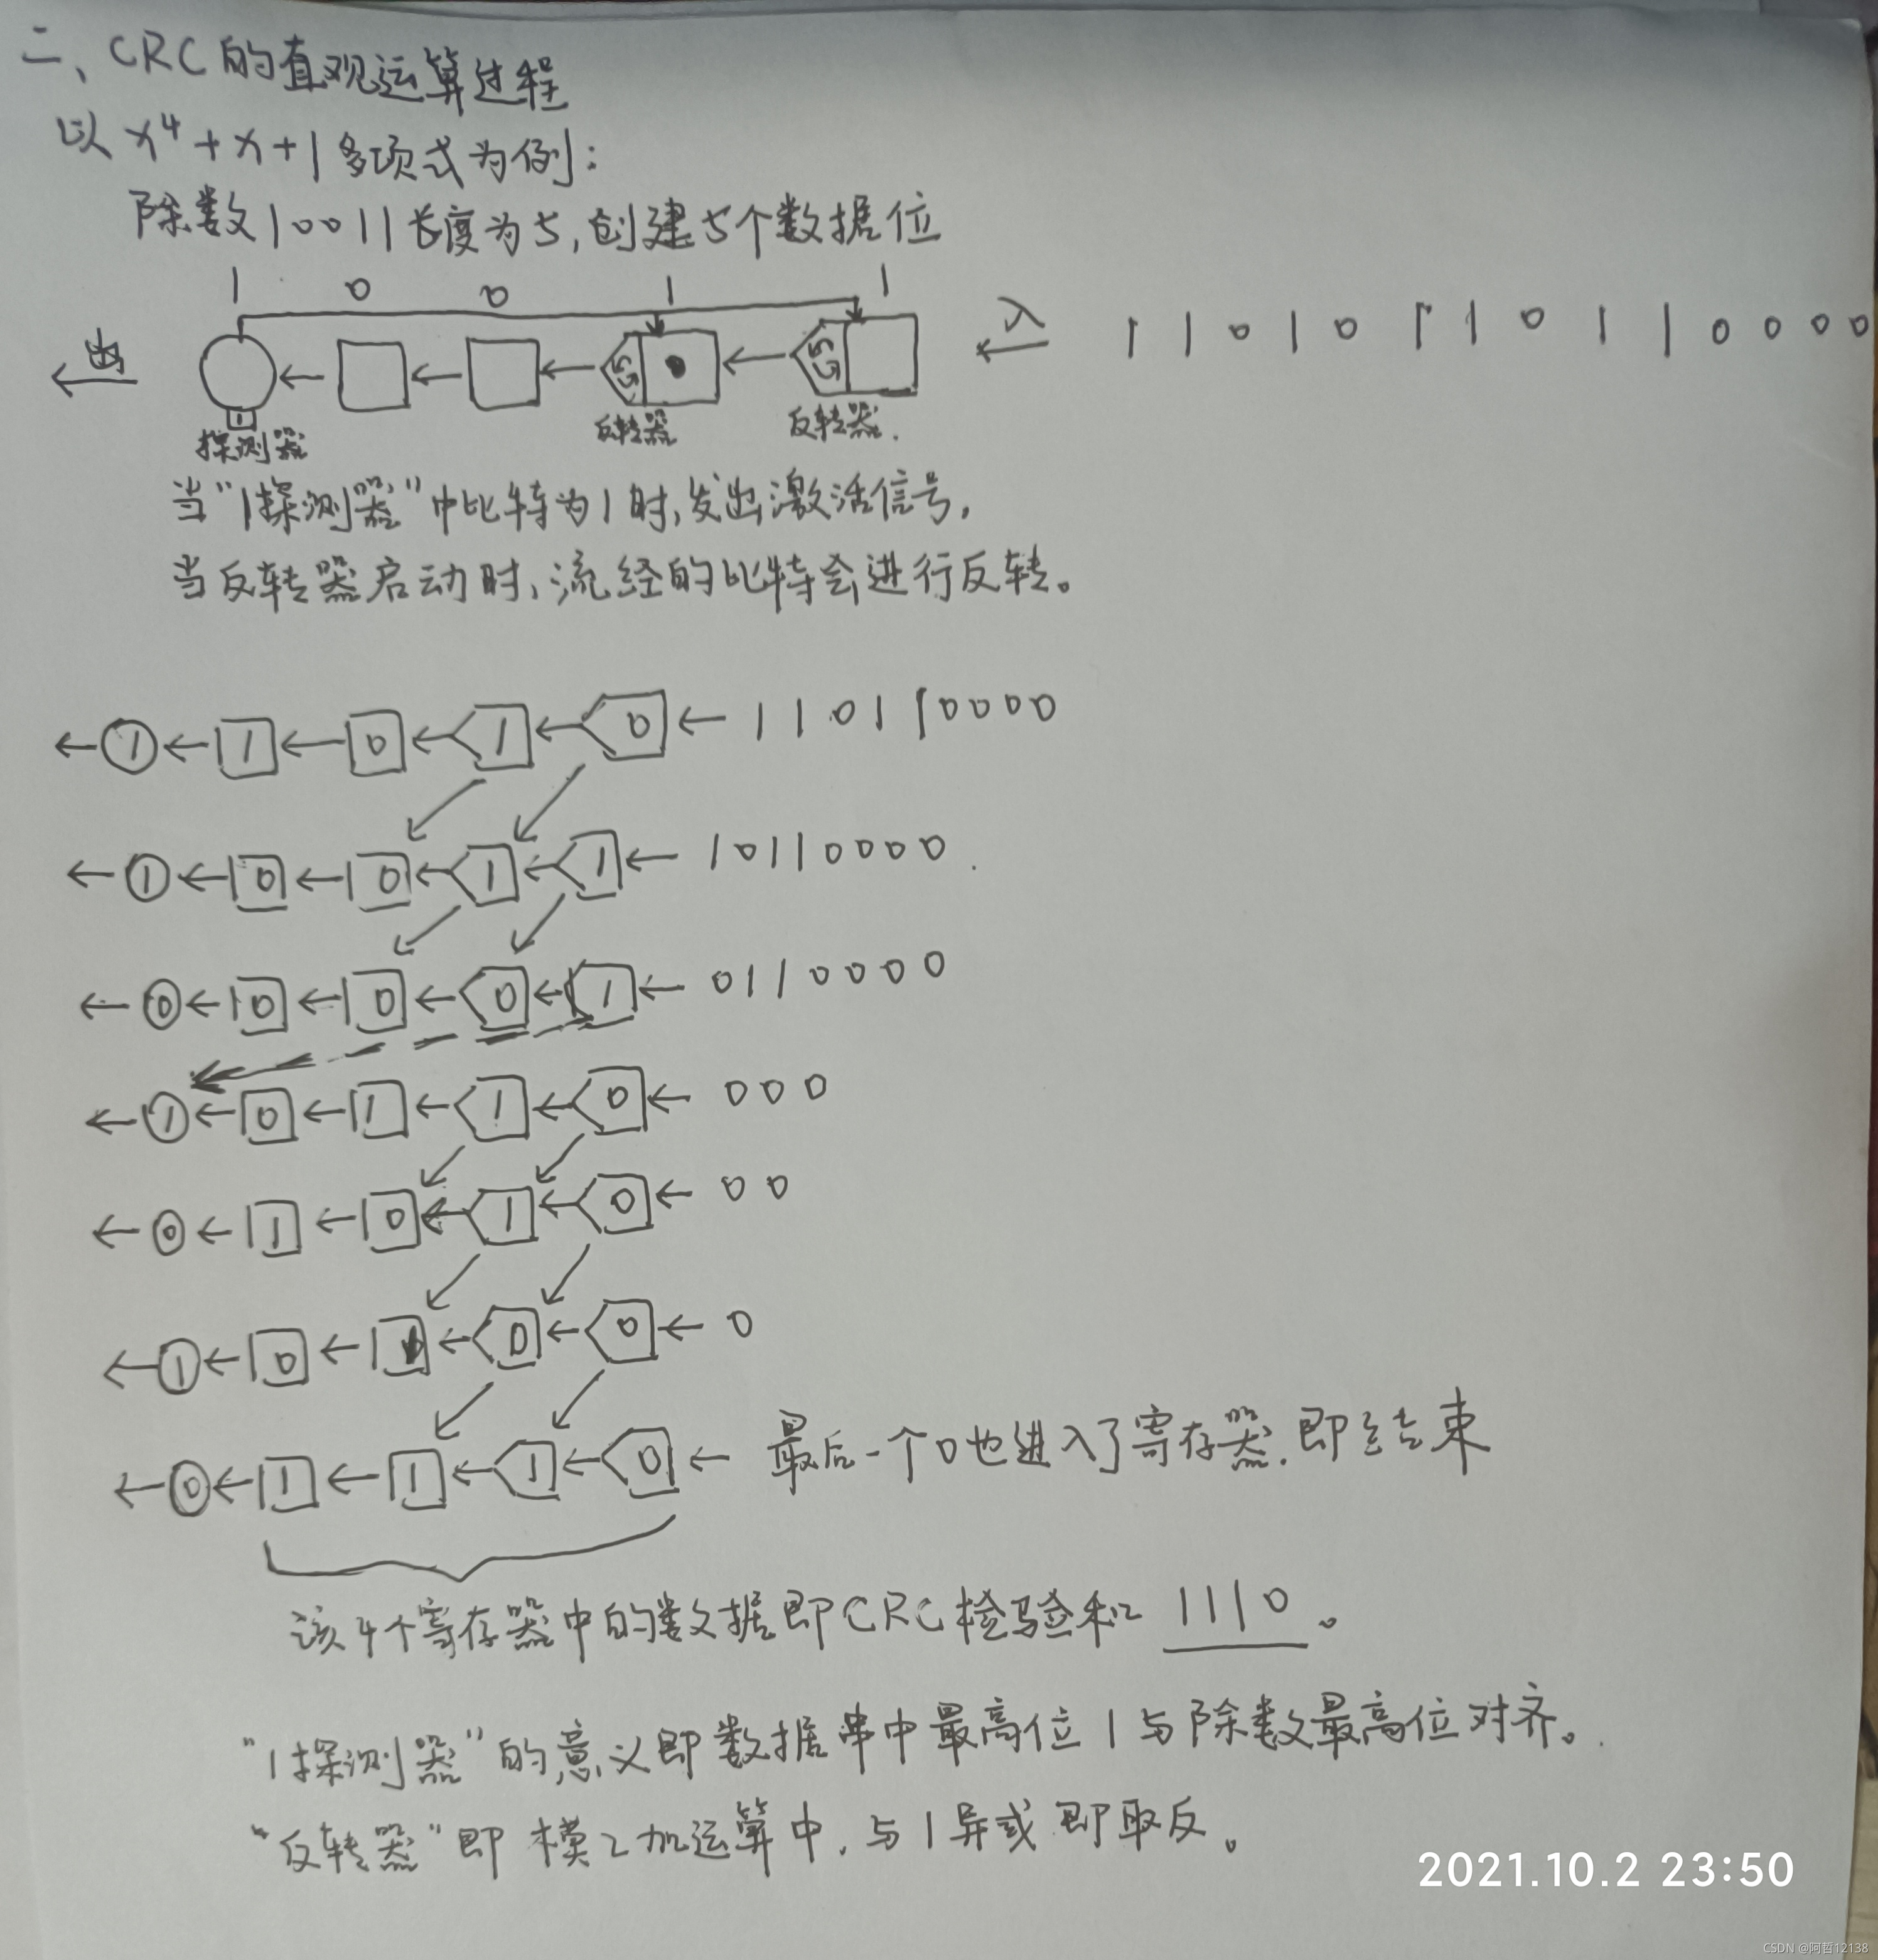 二、CRC的直观运算过程
以 x⁴+x+1多项式为例：
除数10011长度为5，创建5个数据位
1 0 0 1 1
出 0 入 1 1 0 1 0 1 1 0 1 1 0 0 0 0
1
探测器 反转器 反转器.
当“1探测器”中比特为1时，发出激活信号，
当反转器启动时，流经的比特会进行反转。
← 1 ← 1 ← 0 ← 1 ← 0 ← 1 1 0 1 1 0 0 0 0
← 1 ← 0 ← 0 ← 1 ← 1 ← 1 0 1 1 0 0 0 0 .
← 0 ← 0 ← 0 ← 0 ← 1 ← 0 1 1 0 0 0 0
← 1 ← 0 ← 1 ← 1 ← 0 ← 0 0 0
← 0 ← 1 ← 0 ← 1 ← 0 ← 0 0
← 1 ← 0 ← ← 0 ← 0 ← 0
← 0 ← 1 ← 1 ← 1 ← 0 ← 最后一个0也进入了寄存器.即结束
该4个寄存器中的数据即CRC检验和 1110 。
“1探测器”的意义即数据串中最高位1与除数最高位对齐。
“反转器”即模2加运算中，与1异或即取反。
2021.10.2 23:50
CSDN @阿哲12138